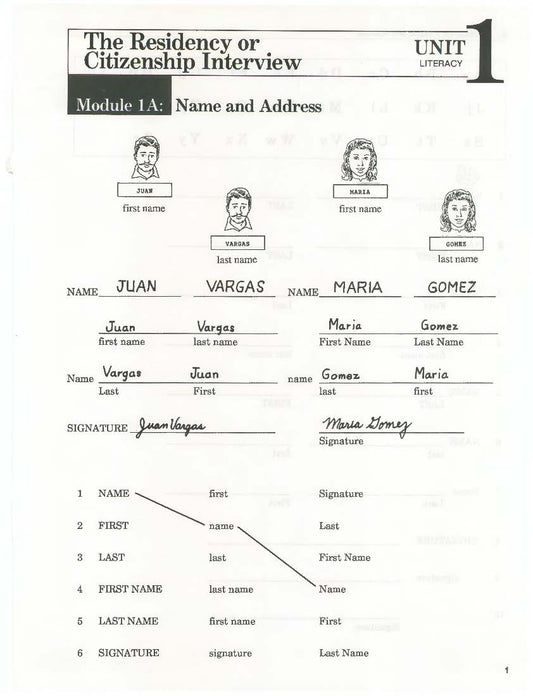 The Residency or
Citizenship Interview
UNIT 1
LITERACY
Module 1A: Name and Address
JUAN
first name
VARGAS
last name
MARIA
first name
GOMEZ
last name
NAME JUAN VARGAS NAME MARIA GOMEZ
Juan Vargas Maria Gomez
first name last name First Name Last Name
Name Vargas Juan name Gomez Maria
Last First last first
SIGNATURE Juan Vargas Maria Gomez
Signature
1 NAME first Signature
2 FIRST name Last
3 LAST last First Name
4 FIRST NAME last name Name
5 LAST NAME first name First
6 SIGNATURE signature Last Name
1